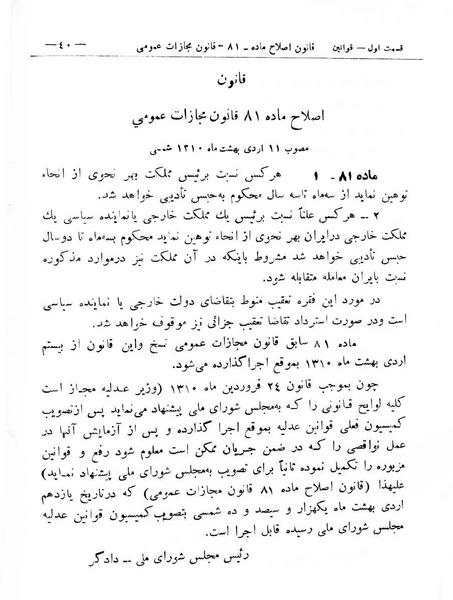 قسمت اول — قوانین    قانون اصلاح ماده - ۸۱ - قانون مجازات عمومی    — ۴۰ —
قانون
اصلاح ماده ۸۱ قانون مجازات عمومی
مصوب ۱۱ اردی بهشت ماه ۱۳۱۰ شمسی
ماده ۸۱ - ۱ هرکس نسبت برئیس مملکت بهر نحوی از انحاء
توهین نماید از سه‌ماه تاسه سال محکوم به‌حبس تأدیبی خواهد شد.
۲ – هرکس علناً نسبت برئیس یك مملکت خارجی یانماینده سیاسی یك
مملکت خارجی درایران بهر نحوی از انحاء توهین نماید محکوم بسه‌ماه تا دوسال
حبس تأدیبی خواهد شد مشروط باینکه در آن مملکت نیز درموارد مذکوره
نسبت بایران معامله متقابله شود.
در مورد این فقره تعقیب منوط بتقاضای دولت خارجی یا نماینده سیاسی
است ودر صورت استرداد تقاضا تعقیب جزائی نیز موقوف خواهد شد.
ماده ۸۱ سابق قانون مجازات عمومی نسخ واین قانون از بیستم
اردی بهشت ماه ۱۳۱۰ بموقع اجراگذارده می‌شود.
چون بموجب قانون ۲۴ فروردین ماه ۱۳۱۰ (وزیر عدلیه مجاز است
کلیه لوایح قانونی را که به‌مجلس شورای ملی پیشنهاد می‌نماید پس ازتصویب
کمیسیون فعلی قوانین عدلیه بموقع اجرا گذارده و پس از آزمایش آنها در
عمل نواقصی را که در ضمن جریان ممکن است معلوم شود رفع و قوانین
مزبوره را تکمیل نموده ثانیاً برای تصویب به‌مجلس شورای ملی پیشنهاد نماید)
علیهذا (قانون اصلاح ماده ۸۱ قانون مجازات عمومی) که درتاریخ یازدهم
اردی بهشت ماه یکهزار و سیصد و ده شمسی بتصویب‌کمیسیون قوانین عدلیه
مجلس شورای ملی رسیده قابل اجرا است.
رئیس مجلس شورای ملی – دادگر